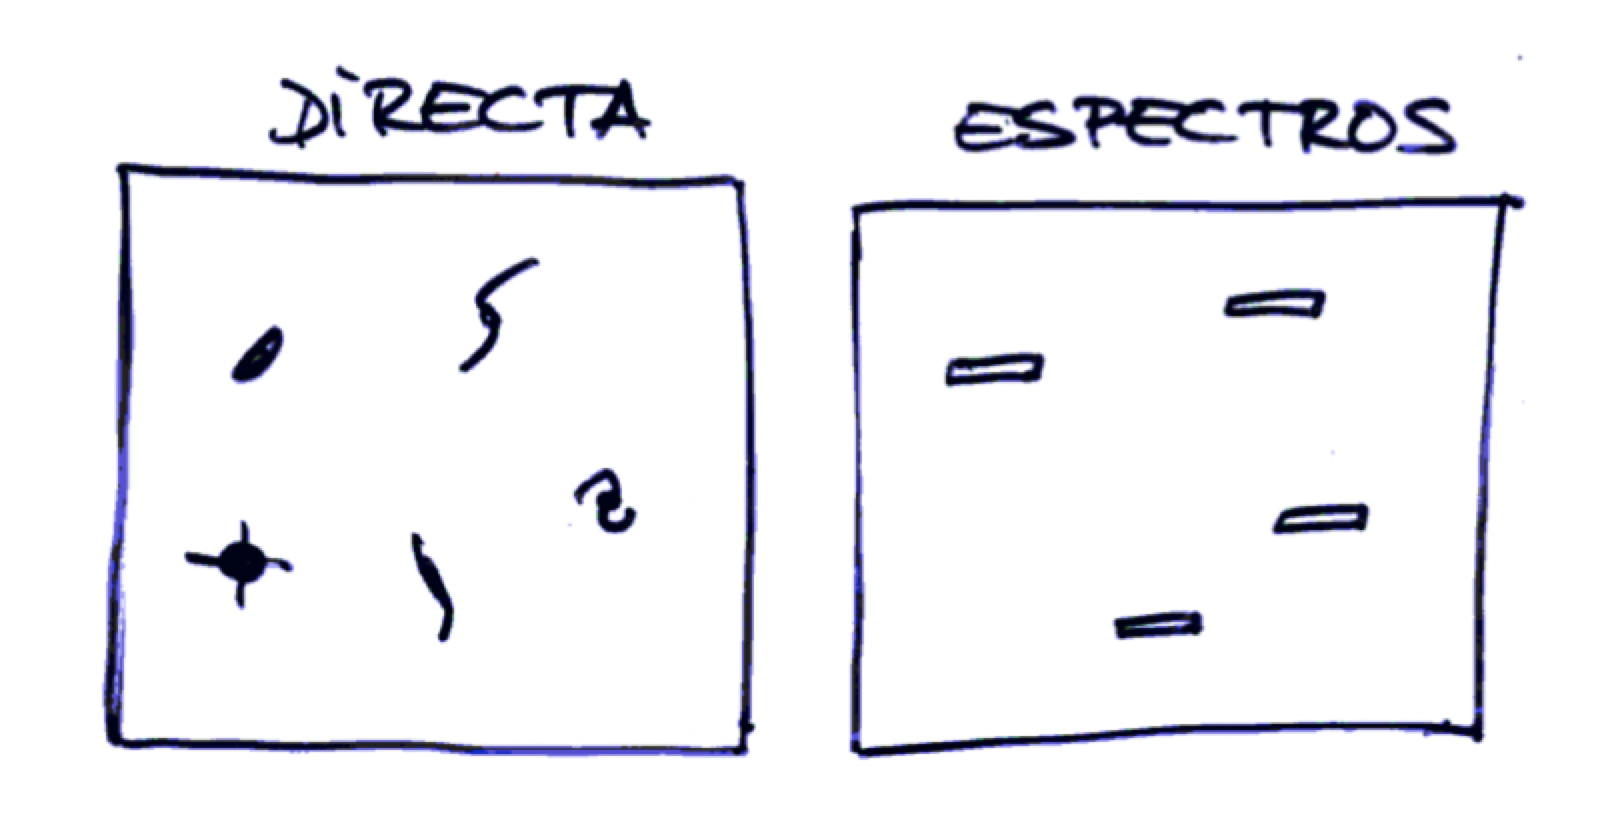 DIRECTA
ESPECTROS